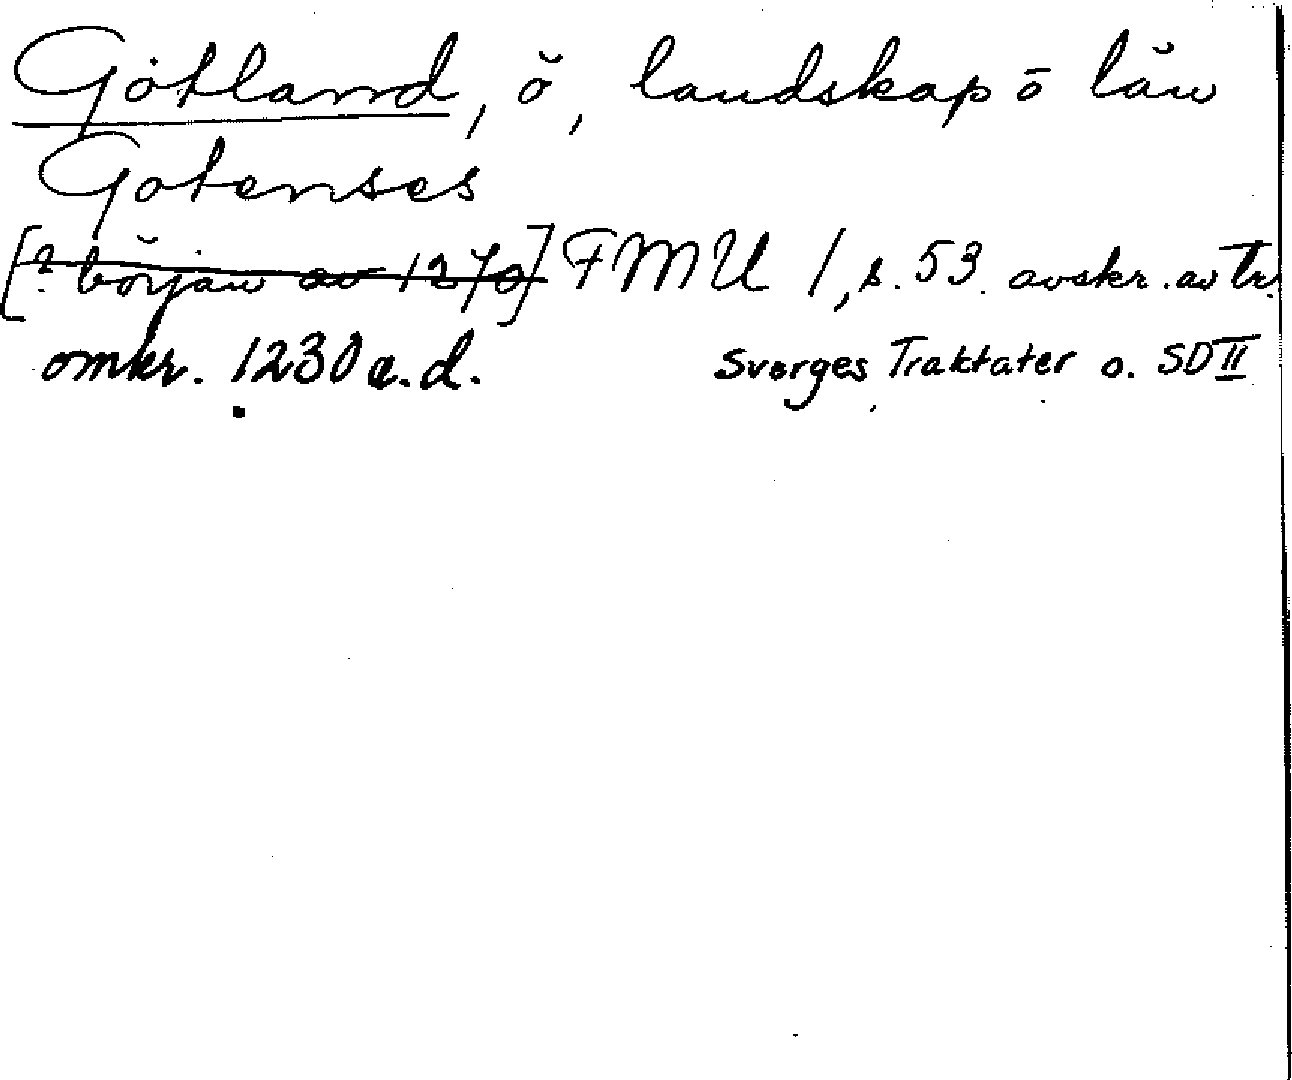 Gotland, ö, landskap o län
Gotenses
[? början av 1270] FMU 1, s. 53. avskr. av tr.
omkr. 1230 a.d. Sverges Traktater o. SD II